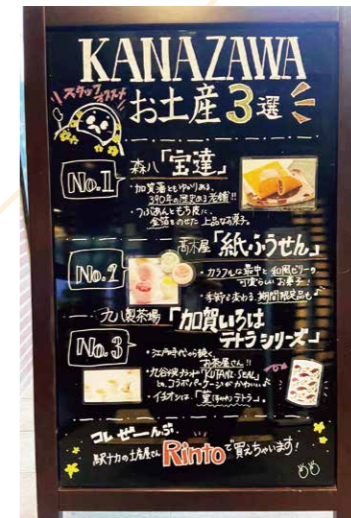 KANAZAWA
スタッフオススメ
お土産3選
No.1
森八「宝達」
・加賀藩ともゆかりある、
390年の歴史ある老舗!!
・つぶあんともち皮に、
金箔をのせた上品なお菓子。
No.2
高木屋「紙ふうせん」
・カラフルな最中と和風ゼリーの
可愛らしいお菓子!
・季節で変わる期間限定品も
No.3
丸八製茶場「加賀いろは
テトラシリーズ」
・江戸時代から続く、
お茶屋さん!!
・九谷焼
とのコラボパッケージがかわいい
・イチオシは、「 テトラ」。
コレぜーんぶ、
駅ナカの土産屋さんRintoで買えちゃいます!